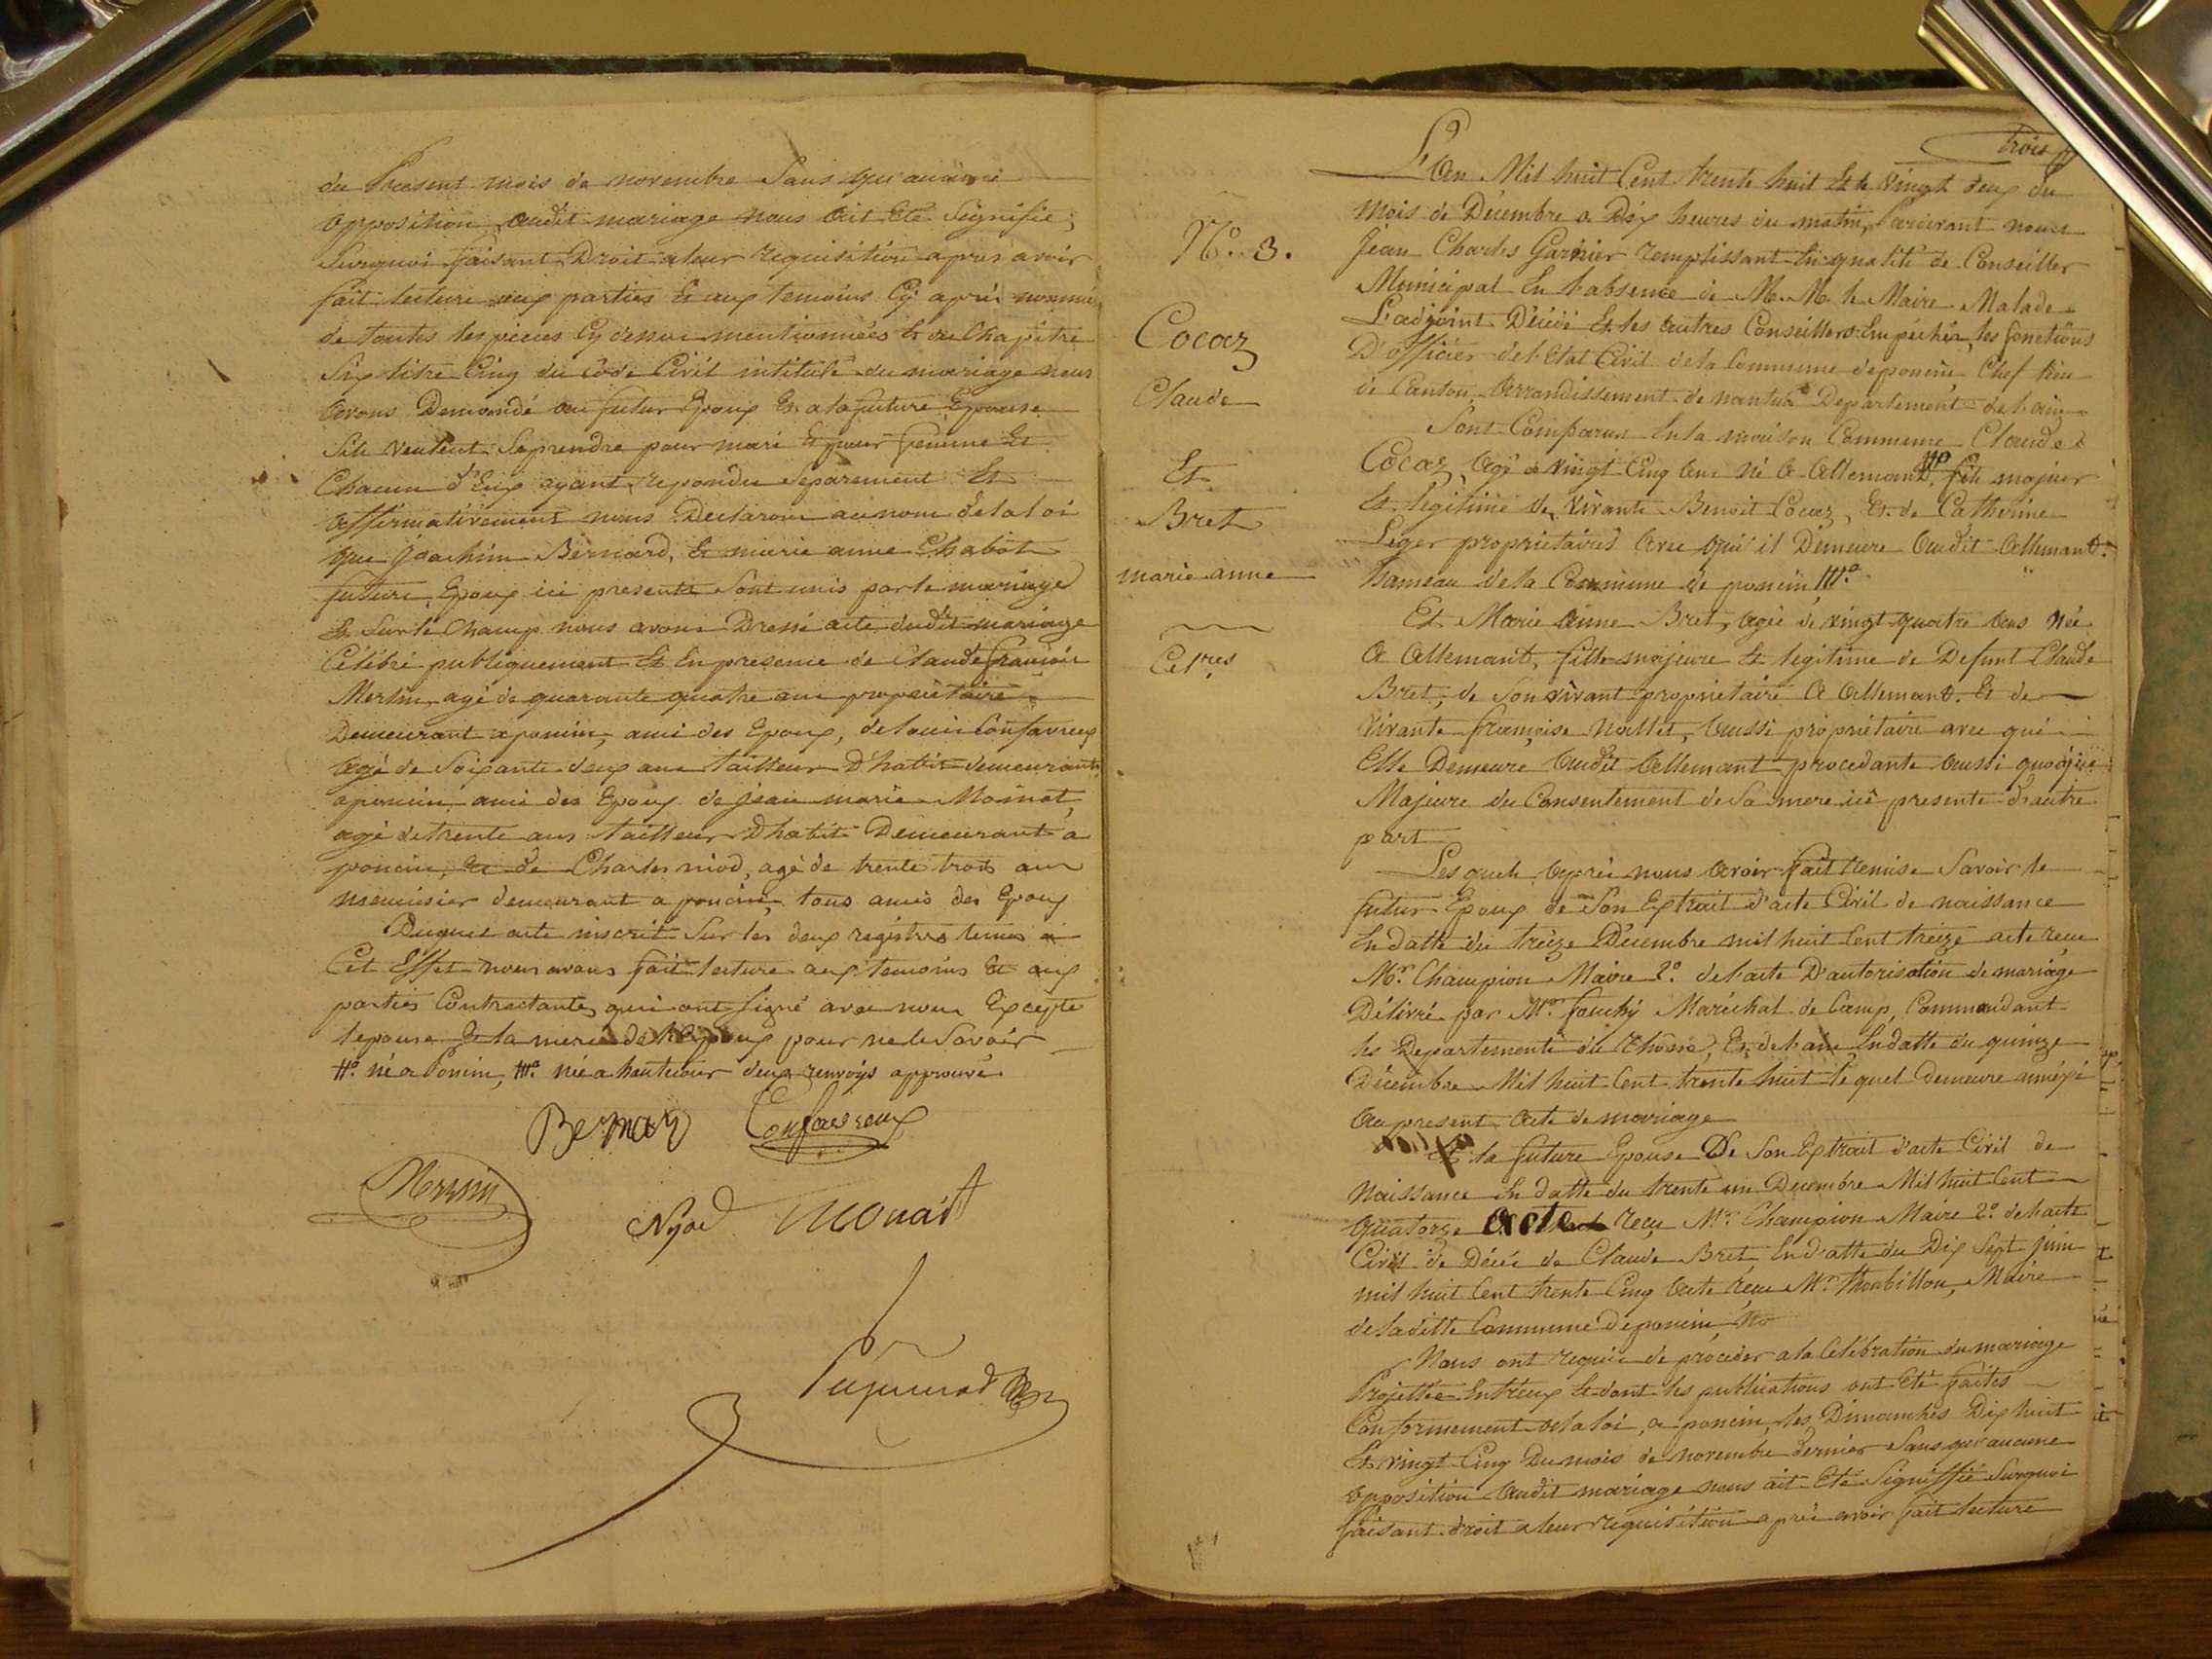 du Présent mois de novembre Sans que aucune
opposition audit mariage nous ait Eté Signifie;
Surquoi faisant Droit aleur requisition apres avoir
fait lecture aux parties Et aux temoins Cy après nommés
de toutes les pieces Cy dessus mentionnées Et du Chapitre
Six titre Cinq du Code Civil intitulé du mariage nous
avons Demandé au futur Epoux Et ala future Epouse
Sils veulent Seprendre pour mari Et pour femme Et
Chacun d'Eux ayant repondu Separement Et
affirmativement nous Declarons aunom delaloi
que Joachim Bernard, Et marie anne Chabot
future Epoux ici presents Sont unis par le mariage
Et Sur le Champ nous avons Dressé acte dudit mariage
Célébré publiquement Et En presence de Claude françois
Merlin, agé de quarante quatre ans propriétaire
Demeurant aponcin, ami des Epoux, de louis Confavreux
agé de Soixante deux ans tailleur D'habit demeurant
aponcin ami des Epoux de jean marie Moinat,
agé de trente ans tailleur D'habit Demeurant a
poncin, Et de Charles niod, agé de trente trois ans
menuisier demeurant a poncin, tous amis des Epoux
Duquel acte inscrit Sur les deux registres tenus a
Cet Effet nous avons fait lecture aux temoins Et aux
parties Contractantes qui ont Signé avec nous Excepte
lepouse Et la mere de l'Epoux pour ne le Savoir
né a Poncin, née a hautecour deux renvoys approuvé
Bernar Confavreux
Merlin
Nyod Monat
trois
L'an Mil huit Cent trente huit Et le vingt deux du
Mois de Décembre a Dix heures du matin, Pardevant nous
Jean Charles Garnier remplissant En qualité de Conseiller
Municipal En l'absence de M. M. le Maire Malade
L'adjoint Décédé Et les autres Conseillers Empéchés, les fonctions
D'officier del'Etat Civil dela Commune deponcin Chef lieu
de Canton, Arrondissement de nantua Departement de l'ain
Sont Comparus En la maison Commune Claude
Cocaz, agé de vingt Cinq ans né A Allemant, fils majeur
Et légitime de vivants Benoit Cocaz, Et de Catherine
Leger propriétaires avec qui il Demeure audit Allemant
hameau dela Commune de poncin
Et Marie Anne Bret, agée de vingt quatre ans Née
A Allemant, fille majeure Et legitime de Defunt Claude
Bret, de Son vivant propriétaire A Allemant. Et de
vivante françoise Nallet, aussi propriétaire avec qui
Elle Demeure audit Allemant procedante aussi quoique
Majeure du Consentement de Sa mere ici presente d'autre
part
Lesquels Après nous avoir fait remise Savoir le
futur Epoux de Son Extrait d'acte Civil de naissance
En datte du treize Décembre mil huit Cent treize acte reçu
Mr. Champion Maire 2º. de l'acte D'autorisation de mariage
Délivré par Mr. fouchy Maréchal de Camp, Commandant
les Departements du Rhone, Et de l'ain En datte du quinze
Décembre Mil huit Cent trente huit le quel demeure annéxé
Au present Acte de mariage
Et la future Epouse De Son Extrait d'acte Civil de
Naissance En datte du trente un Decembre Mil huit Cent
quatorze acte reçu Mr. Champion Maire 2º. de l'acte
Civil de Décés de Claude Bret En datte du Dix Sept juin
mil huit Cent trente Cinq Acte reçu Mr. Maire
deladitte Commune de poncin
Nous ont requis de procéder a la Célébration du mariage
Projetté Entr'eux Et dont les publications ont Eté faites
Conformement ala loi, a poncin, les Dimanches Dix huit
Et vingt Cinq Du mois de novembre dernier Sans que aucune
opposition audit mariage nous ait Eté Signiffié Surquoi
faisant droit a leur requisition après avoir fait lecture
Nº. 3.
Cocaz
Claude
Et
Bret
marie anne
Cetres